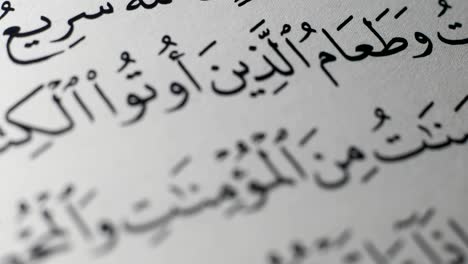 سَرِيعُ
وَطَعَامُ ٱلَّذِينَ أُوتُوا۟ ٱلْكِتَـ
ـنَـٰتُ مِنَ ٱلْمُؤْمِنَـٰتِ وَٱلْمُحْـ